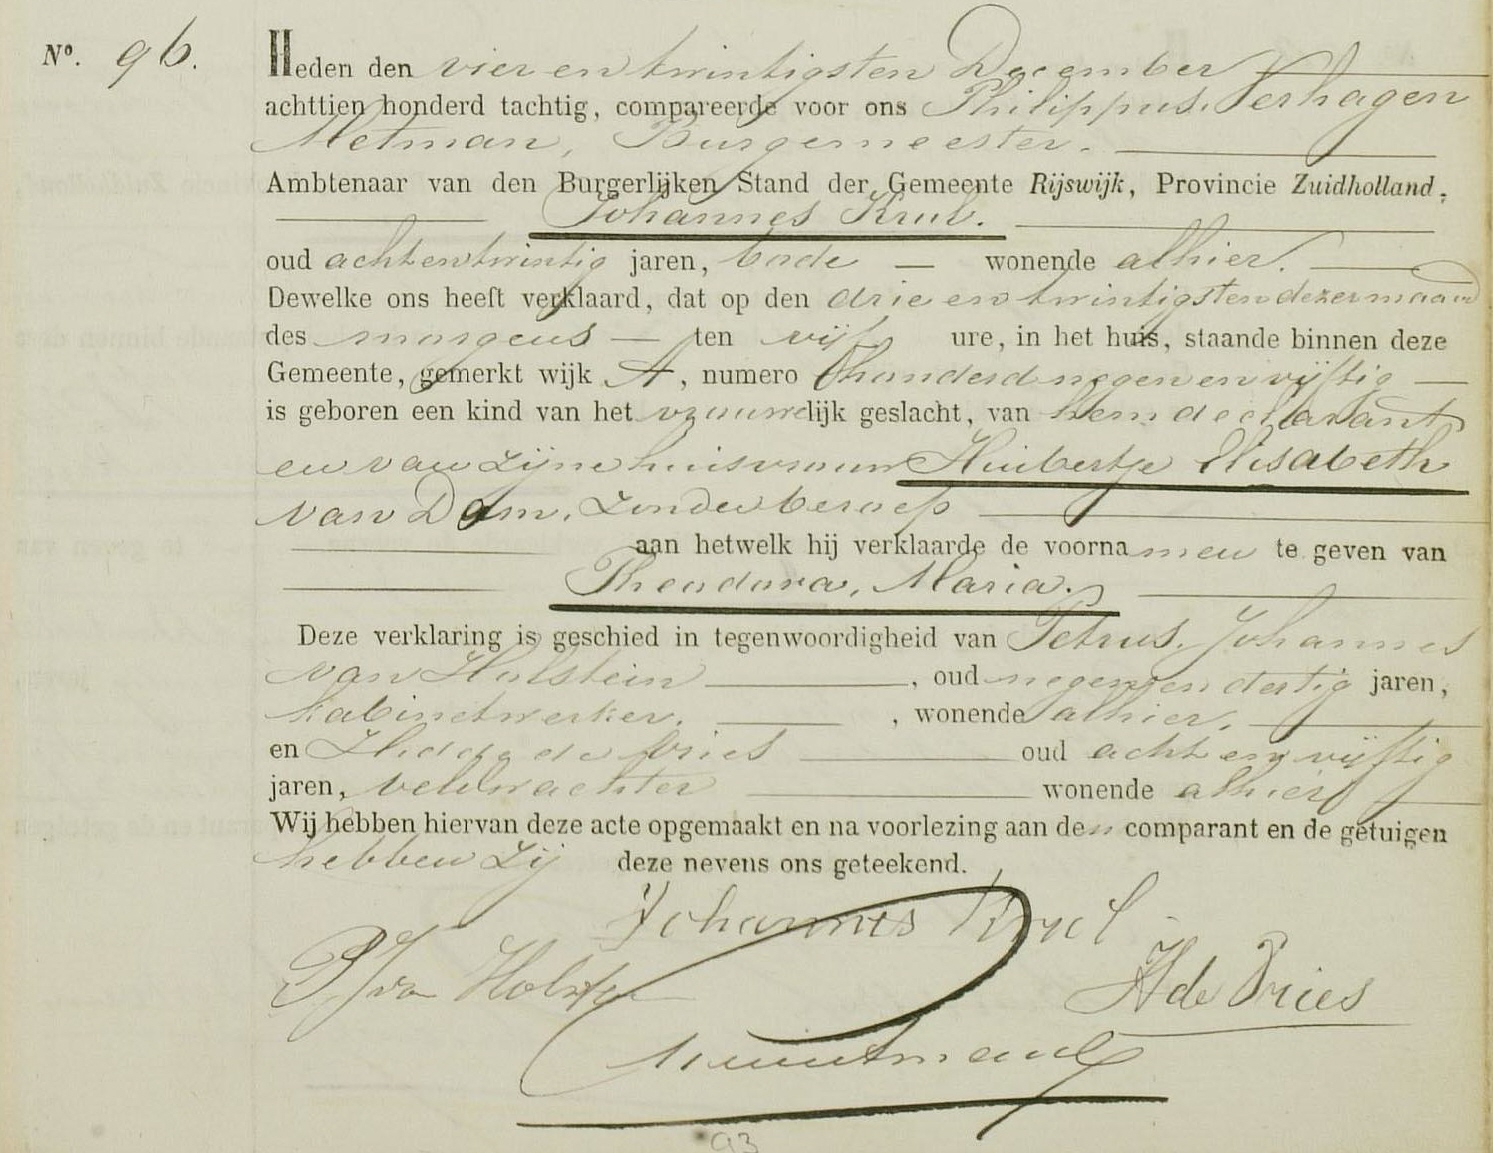 Nº. 96.
Heden den vier en twintigsten December
achttien honderd tachtig, compareerde voor ons Philippus Verhagen
Metman, Burgemeester.
Ambtenaar van den Burgerlijken Stand der Gemeente Rijswijk, Provincie Zuidholland,
Johannes Krul.
oud achtentwintig jaren, bode — wonende alhier.
Dewelke ons heeft verklaard, dat op den drie en twintigsten dezer maand
des morgens — ten vijf ure, in het huis, staande binnen deze
Gemeente, gemerkt wijk A, numero honderd negen en vijftig —
is geboren een kind van het vrouwelijk geslacht, van hem declarant
en van zijne huisvrouw Huibertje Elisabeth
van Dam, zonder beroep
aan hetwelk hij verklaarde de voornamen te geven van
Theodora, Maria.
Deze verklaring is geschied in tegenwoordigheid van Petrus Johannes
van Holstein, oud negenendertig jaren,
kabinetwerker, wonende alhier,
en de Vries oud acht en vijftig
jaren, veldwachter wonende alhier
Wij hebben hiervan deze acte opgemaakt en na voorlezing aan den comparant en de getuigen
hebben zij deze nevens ons geteekend.
Johannes Krul
PJ van Holstein
H de Vries
93